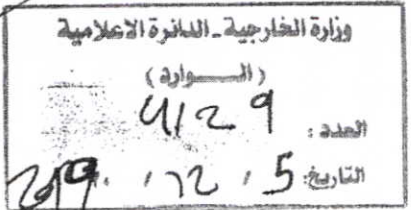 وزارة الخارجية - الدائرة الاعلامية
( الـــواردة )
العدد : 4129
التاريخ: 5 / 12 / 2019